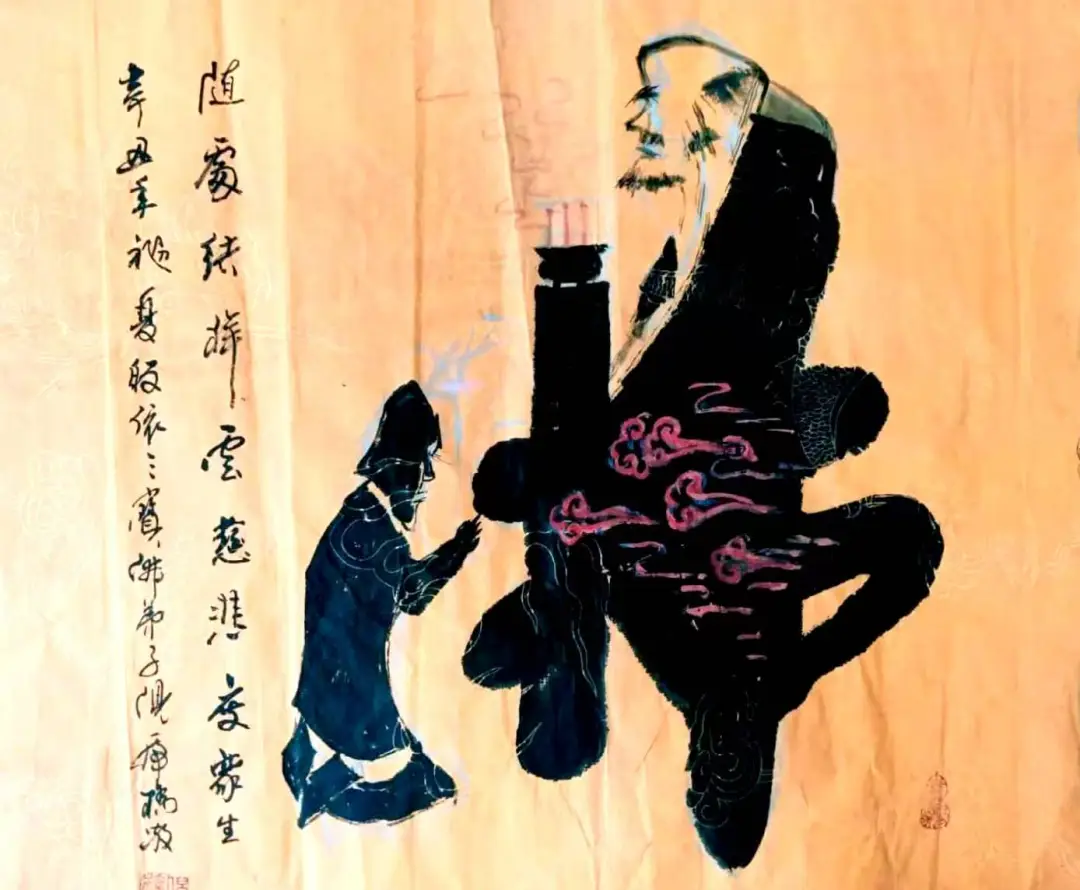 随處结祥雲慈悲度眾生
辛丑年初夏皈依三寶佛弟子